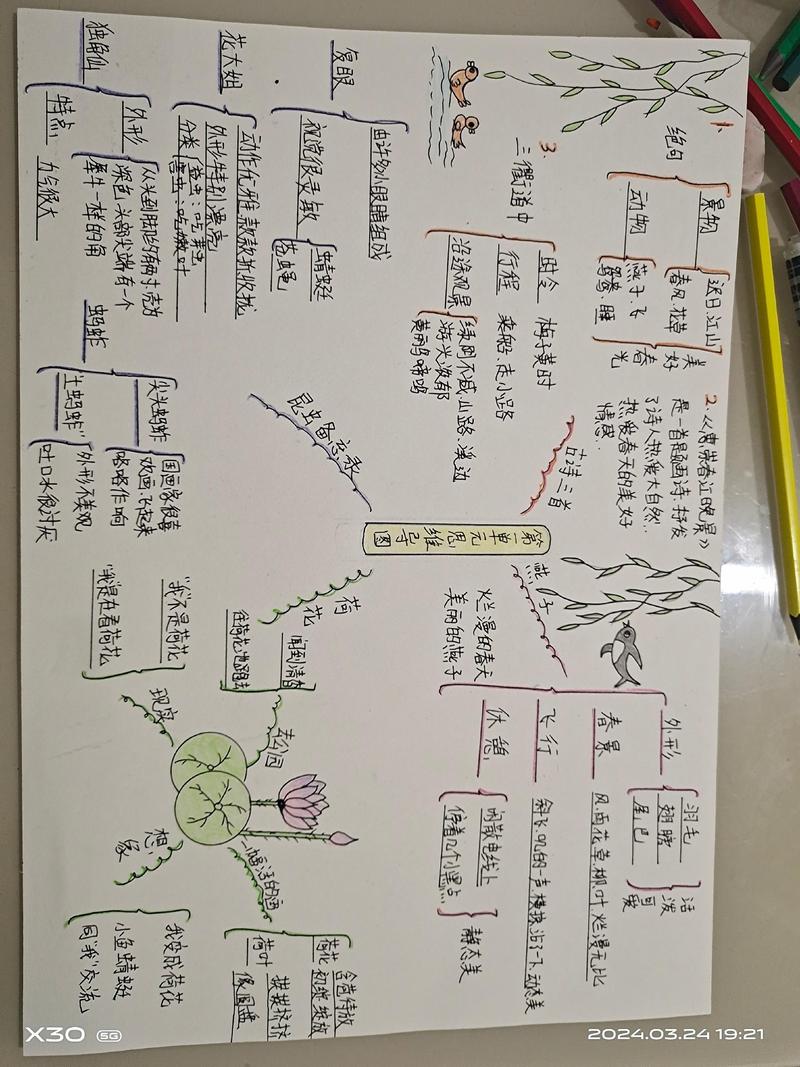 第一单元思维导图
古诗三首
1.
绝句
景物
迟日.江山
春风.花草
动物
燕子.飞
鸳鸯.睡
美好
春光
2.《惠崇春江晚景》
是一首题画诗.抒发
了诗人热爱大自然.
热爱春天的美好
情感.
3.
三衢道中
时令
梅子黄时
行程
乘船.走小路
沿途观景
绿阴不减.山路.溪边
黄鹂鸟啼鸣
燕子
烂漫的春天
美丽的燕子
外形
羽毛
翅膀
尾巴
活泼
可爱
春景
风.雨花.草.柳.叶 烂漫无比
飞行
休憩
闲散电线上
停着几个小黑点
静态美
昆虫备忘录
复眼
由许多小眼睛组成
视觉很灵敏
蜻蜓
苍蝇
花大姐
动作优雅款款折收拢
外形特别漂亮
分类
益虫:吃蚜虫
害虫:吃嫩叶
独角仙
外形
深色.头部尖端有一个
犀牛一样的角
特点
力气很大
蚂蚱
尖头蚂蚱
国画家很喜
欢画.飞起来
咯咯作响
"土蚂蚱"
外形不美观
吐口水很讨厌
荷花
去公园
闻到清香
往荷花池跑去
一幅活的画
荷花
含苞待放
初绽.绽放
荷叶
挨挨挤挤
像圆盘
想象
我变成荷花
小鱼蜻蜓
同"我"交流
现实
"我"不是荷花
"我"是在看荷花
X30 5G
2024.03.24 19:21